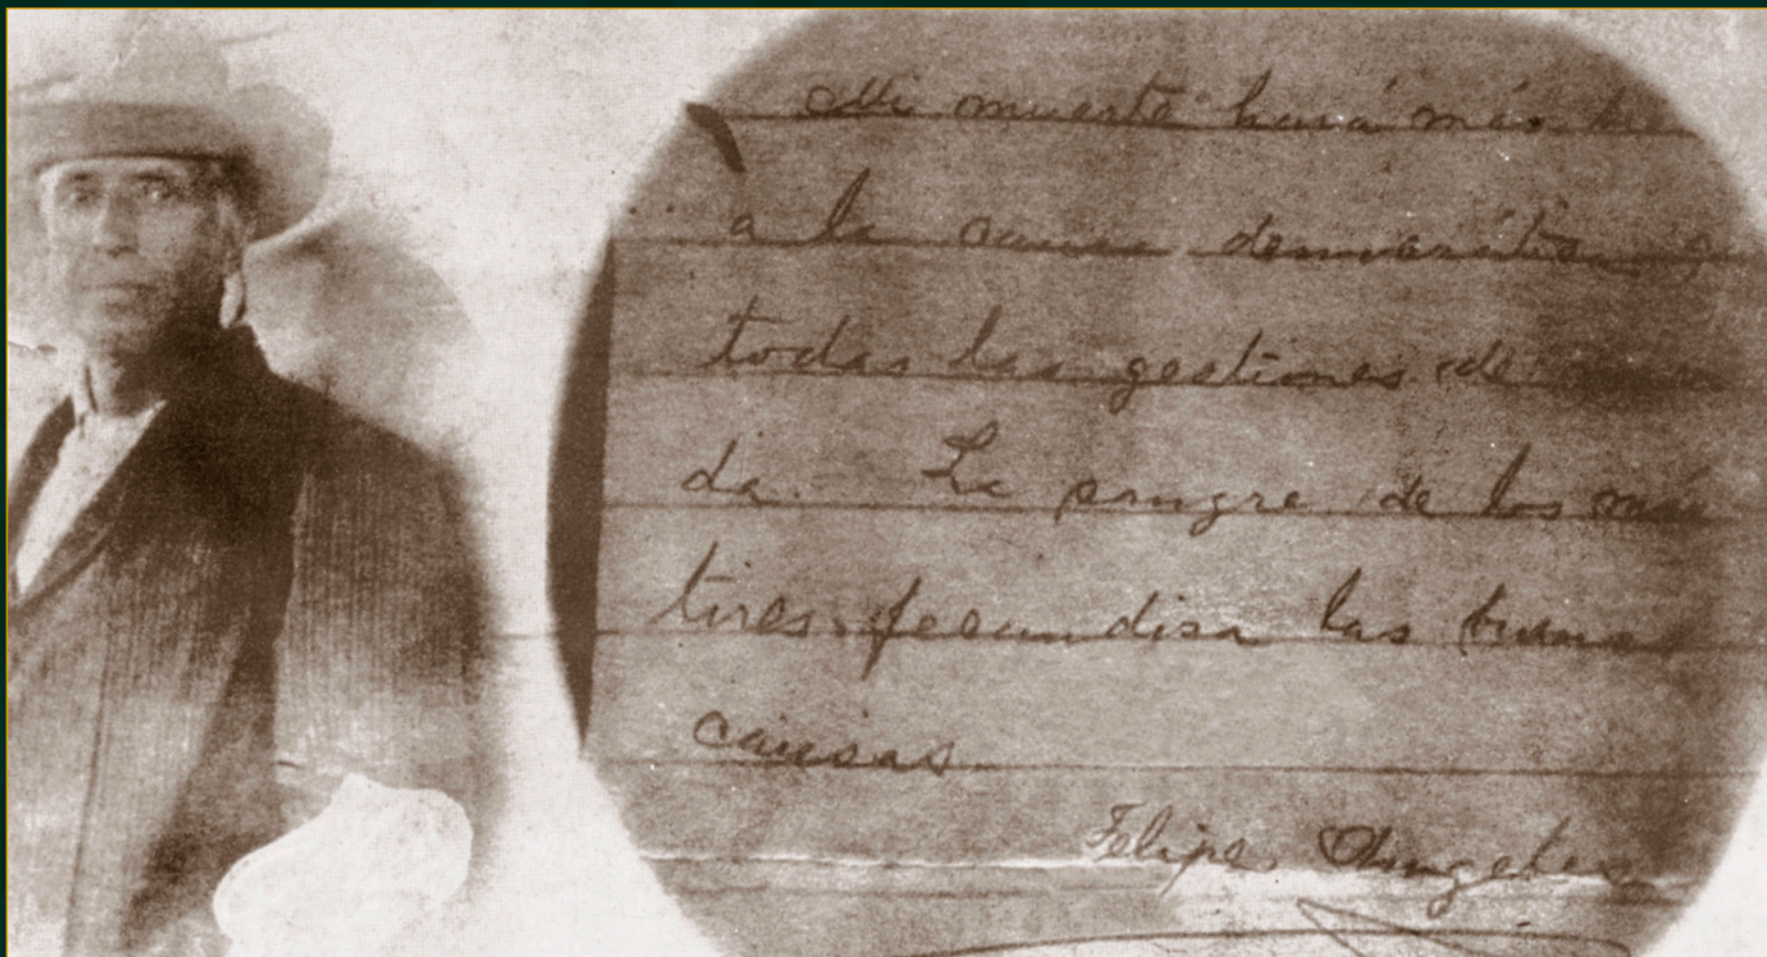 Mi muerte hará más
a la causa democrática
todas las gestiones de
da. La sangre de los már
tires fecundisa las buena
causas.
Felipe Angeles